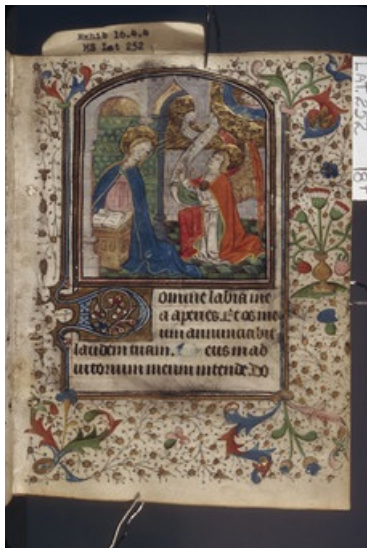 Exhib 16.4.4
MS Lat 252
LAT. 252 18r
Domine labia me
a aperies. Et os me
um annunciabit
laudem tuam. Deus in ad
iutorium meum intende Do